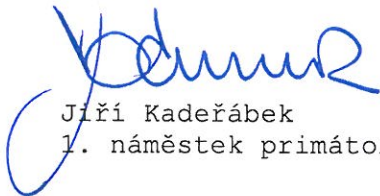 Jiří Kadeřábek
1. náměstek primáto